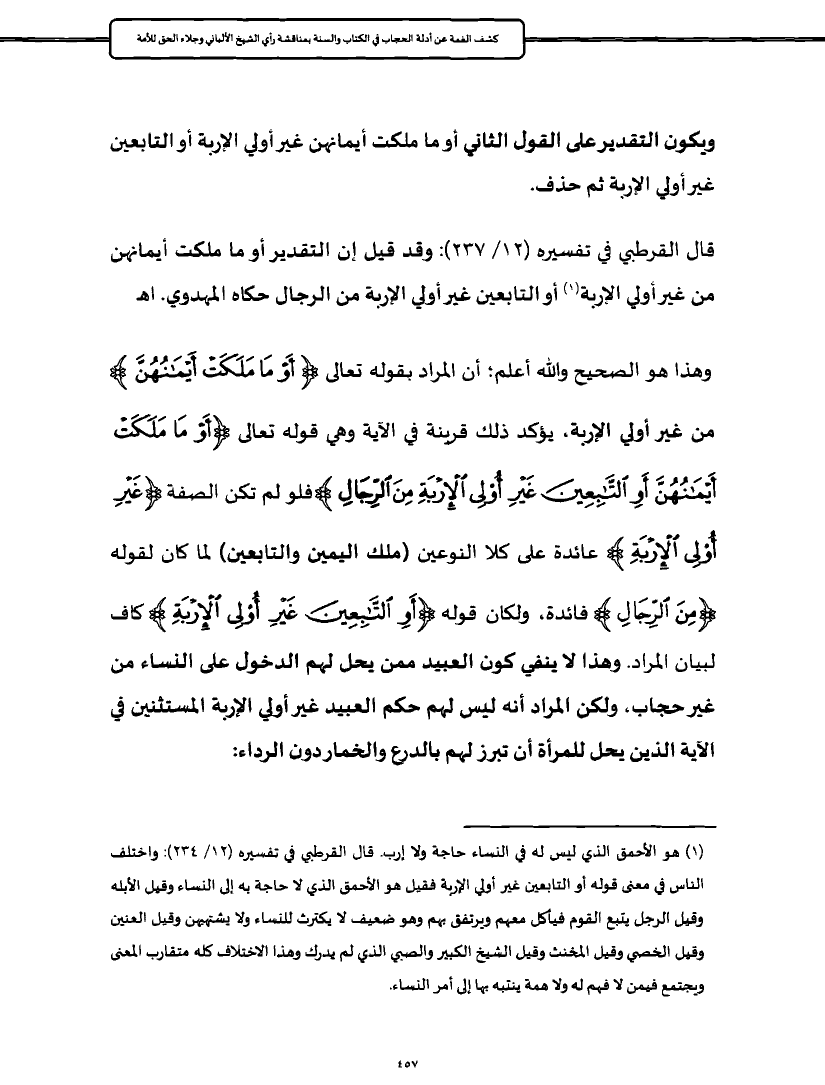 كشف الغمة عن أدلة الحجاب في الكتاب والسنة بمناقشة رأي الشيخ الألباني وجلاء الحق للأمة
ويكون التقدير على القول الثاني أو ما ملكت أيمانهن غير أولي الإربة أو التابعين
غير أولي الإربة ثم حذف.
قال القرطبي في تفسيره (١٢/ ٢٣٧): وقد قيل إن التقدير أو ما ملكت أيمانهن
من غير أولي الإربة(١) أو التابعين غير أولي الإربة من الرجال حكاه المهدوي. اهـ
وهذا هو الصحيح والله أعلم؛ أن المراد بقوله تعالى ﴿ أَوْ مَا مَلَكَتْ أَيْمَٰنُهُنَّ ﴾
من غير أولي الإربة، يؤكد ذلك قرينة في الآية وهي قوله تعالى ﴿أَوْ مَا مَلَكَتْ
أَيْمَٰنُهُنَّ أَوِ ٱلتَّٰبِعِينَ غَيْرِ أُوْلِى ٱلْإِرْبَةِ مِنَ ٱلرِّجَالِ ﴾ فلو لم تكن الصفة ﴿غَيْرِ
أُوْلِى ٱلْإِرْبَةِ ﴾ عائدة على كلا النوعين (ملك اليمين والتابعين) لما كان لقوله
﴿مِنَ ٱلرِّجَالِ ﴾ فائدة، ولكان قوله ﴿أَوِ ٱلتَّٰبِعِينَ غَيْرِ أُوْلِى ٱلْإِرْبَةِ ﴾ كاف
لبيان المراد. وهذا لا ينفي كون العبيد ممن يحل لهم الدخول على النساء من
غير حجاب، ولكن المراد أنه ليس لهم حكم العبيد غير أولي الإربة المستثنين في
الآية الذين يحل للمرأة أن تبرز لهم بالدرع والخمار دون الرداء:
(١) هو الأحمق الذي ليس له في النساء حاجة ولا إرب. قال القرطبي في تفسيره (١٢/ ٢٣٤): واختلف
الناس في معنى قوله أو التابعين غير أولي الإربة فقيل هو الأحمق الذي لا حاجة به إلى النساء وقيل الأبله
وقيل الرجل يتبع القوم فيأكل معهم ويرتفق بهم وهو ضعيف لا يكترث للنساء ولا يشتهيهن وقيل العنين
وقيل الخصي وقيل المخنث وقيل الشيخ الكبير والصبي الذي لم يدرك وهذا الاختلاف كله متقارب المعنى
ويجتمع فيمن لا فهم له ولا همة ينتبه بها إلى أمر النساء.
٤٥٧